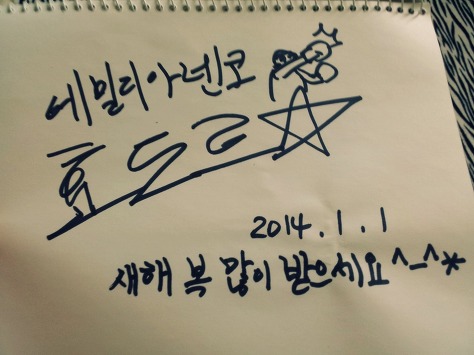 에밀리아넨코
효도르
2014.1.1
새해 복 많이 받으세요 ^_^*